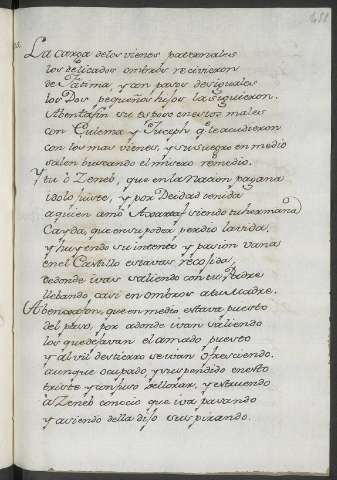 La carga de los vienes paternales
los delicados ombros recivieron
de Fatima, y con pasos desiguales
los Dos pequeños hijos la siguieron.
Abentafin su esposo en estos males
con Çulema y Juceph q le acudieron
con los mas vienes, y su suegro en medio
salen buscando el misero remedio.
Y tu ò Zeneb, que en la Nacion pagana
idolo fuiste, y por Deidad tenida
a quien amò Axartaf siendo tu hermana
Cayda, que en su poder perdio la vida,
y huyendo su intento y pasion vana
en el Castillo estavas recogida,
de donde ivas saliendo con tu Padre
llebando casi en ombros a tu Madre.
Abenearfon, que en medio estava puesto
del paso, por adonde ivan saliendo
los que dejavan el amado puesto
y al vil destierro se ivan ofresciendo.
aunque ocupado y suspendido en esto
triste y confuso de llorar, y estruendo
à Zeneb conocio que iva pasando
y asiendo della dijo suspirando.